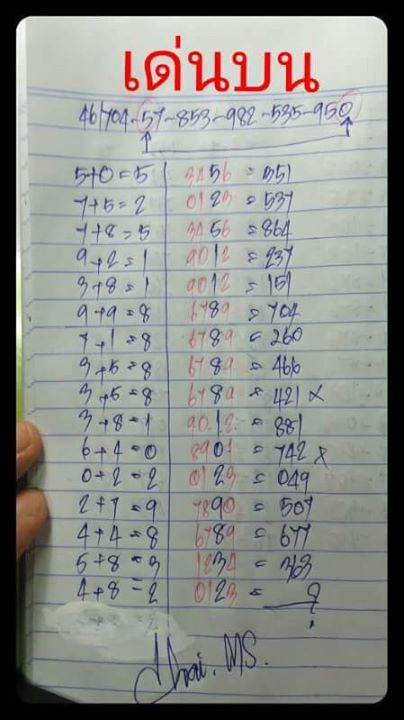 เด่นบน
461704-57-853-982-535-950
5+0=5 3456 = 351
7+5=2 0123 = 537
7+8=5 3456 = 864
9+2=1 9012 = 237
3+8=1 9012 = 151
9+9=8 6789 = 704
7+1=8 6789 = 260
3+5=8 6789 = 466
3+5=8 6789 = 421 x
3+8=1 9012 = 881
6+4=0 8901 = 742 x
0+2=2 0123 = 049
2+7=9 7890 = 507
4+4=8 6789 = 677
5+8=3 1234 = 363
4+8=2 0123 = ?
MS.